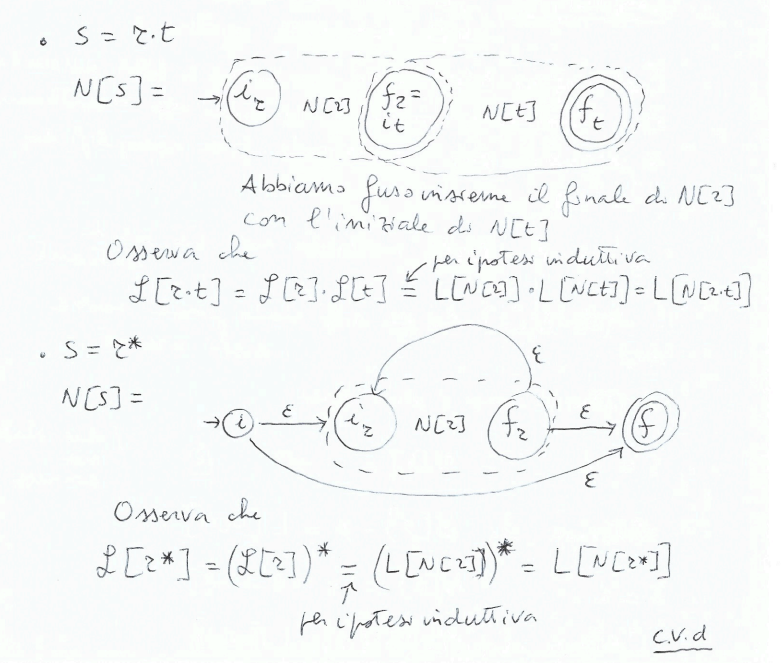 • S = r·t
N[S] = → i_r N[r] f_r = i_t N[t] f_t
Abbiamo fuso insieme il finale di N[r]
con l'iniziale di N[t]
Osserva che
per ipotesi induttiva
ℒ[r·t] = ℒ[r]·ℒ[t] = L[N[r]]·L[N[t]] = L[N[r·t]]
• S = r*
ε
N[S] =
→ i ε i_r N[r] f_r ε f
ε
Osserva che
ℒ[r*] = (ℒ[r])* = (L[N[r]])* = L[N[r*]]
per ipotesi induttiva
c.v.d